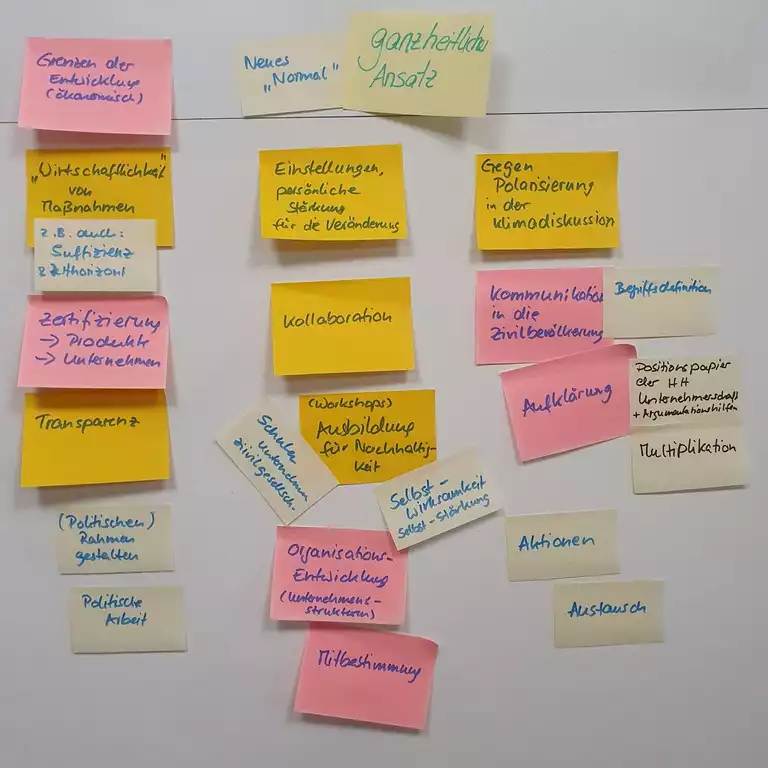 Grenzen der
Entwicklung
(ökonomisch)
Neues
"Normal"
ganzheitlicher
Ansatz
"Wirtschaftlichkeit"
von
Maßnahmen
z.B. auch:
Suffizienz
Zeithorizont
Zertifizierung
→ Produkte
→ Unternehmen
Transparenz
(Politischen)
Rahmen
gestalten
Politische
Arbeit
Einstellungen,
persönliche
Stärkung
für die Veränderung
Kollaboration
(Workshops)
Ausbildung
für Nachhaltig-
keit
Schulen
Unternehmen
zivilgesellsch.
Selbst-
Wirksamkeit
Selbst-Stärkung
Organisations-
Entwicklung
(Unternehmens-
strukturen)
Mitbestimmung
Gegen
Polarisierung
in der
Klimadiskussion
Kommunikation
in die
Zivilbevölkerung
Begriffsdefinition
Aufklärung
Positionspapier
der HH
Unternehmerschaft
+ Argumentationshilfen
Multiplikation
Aktionen
Austausch